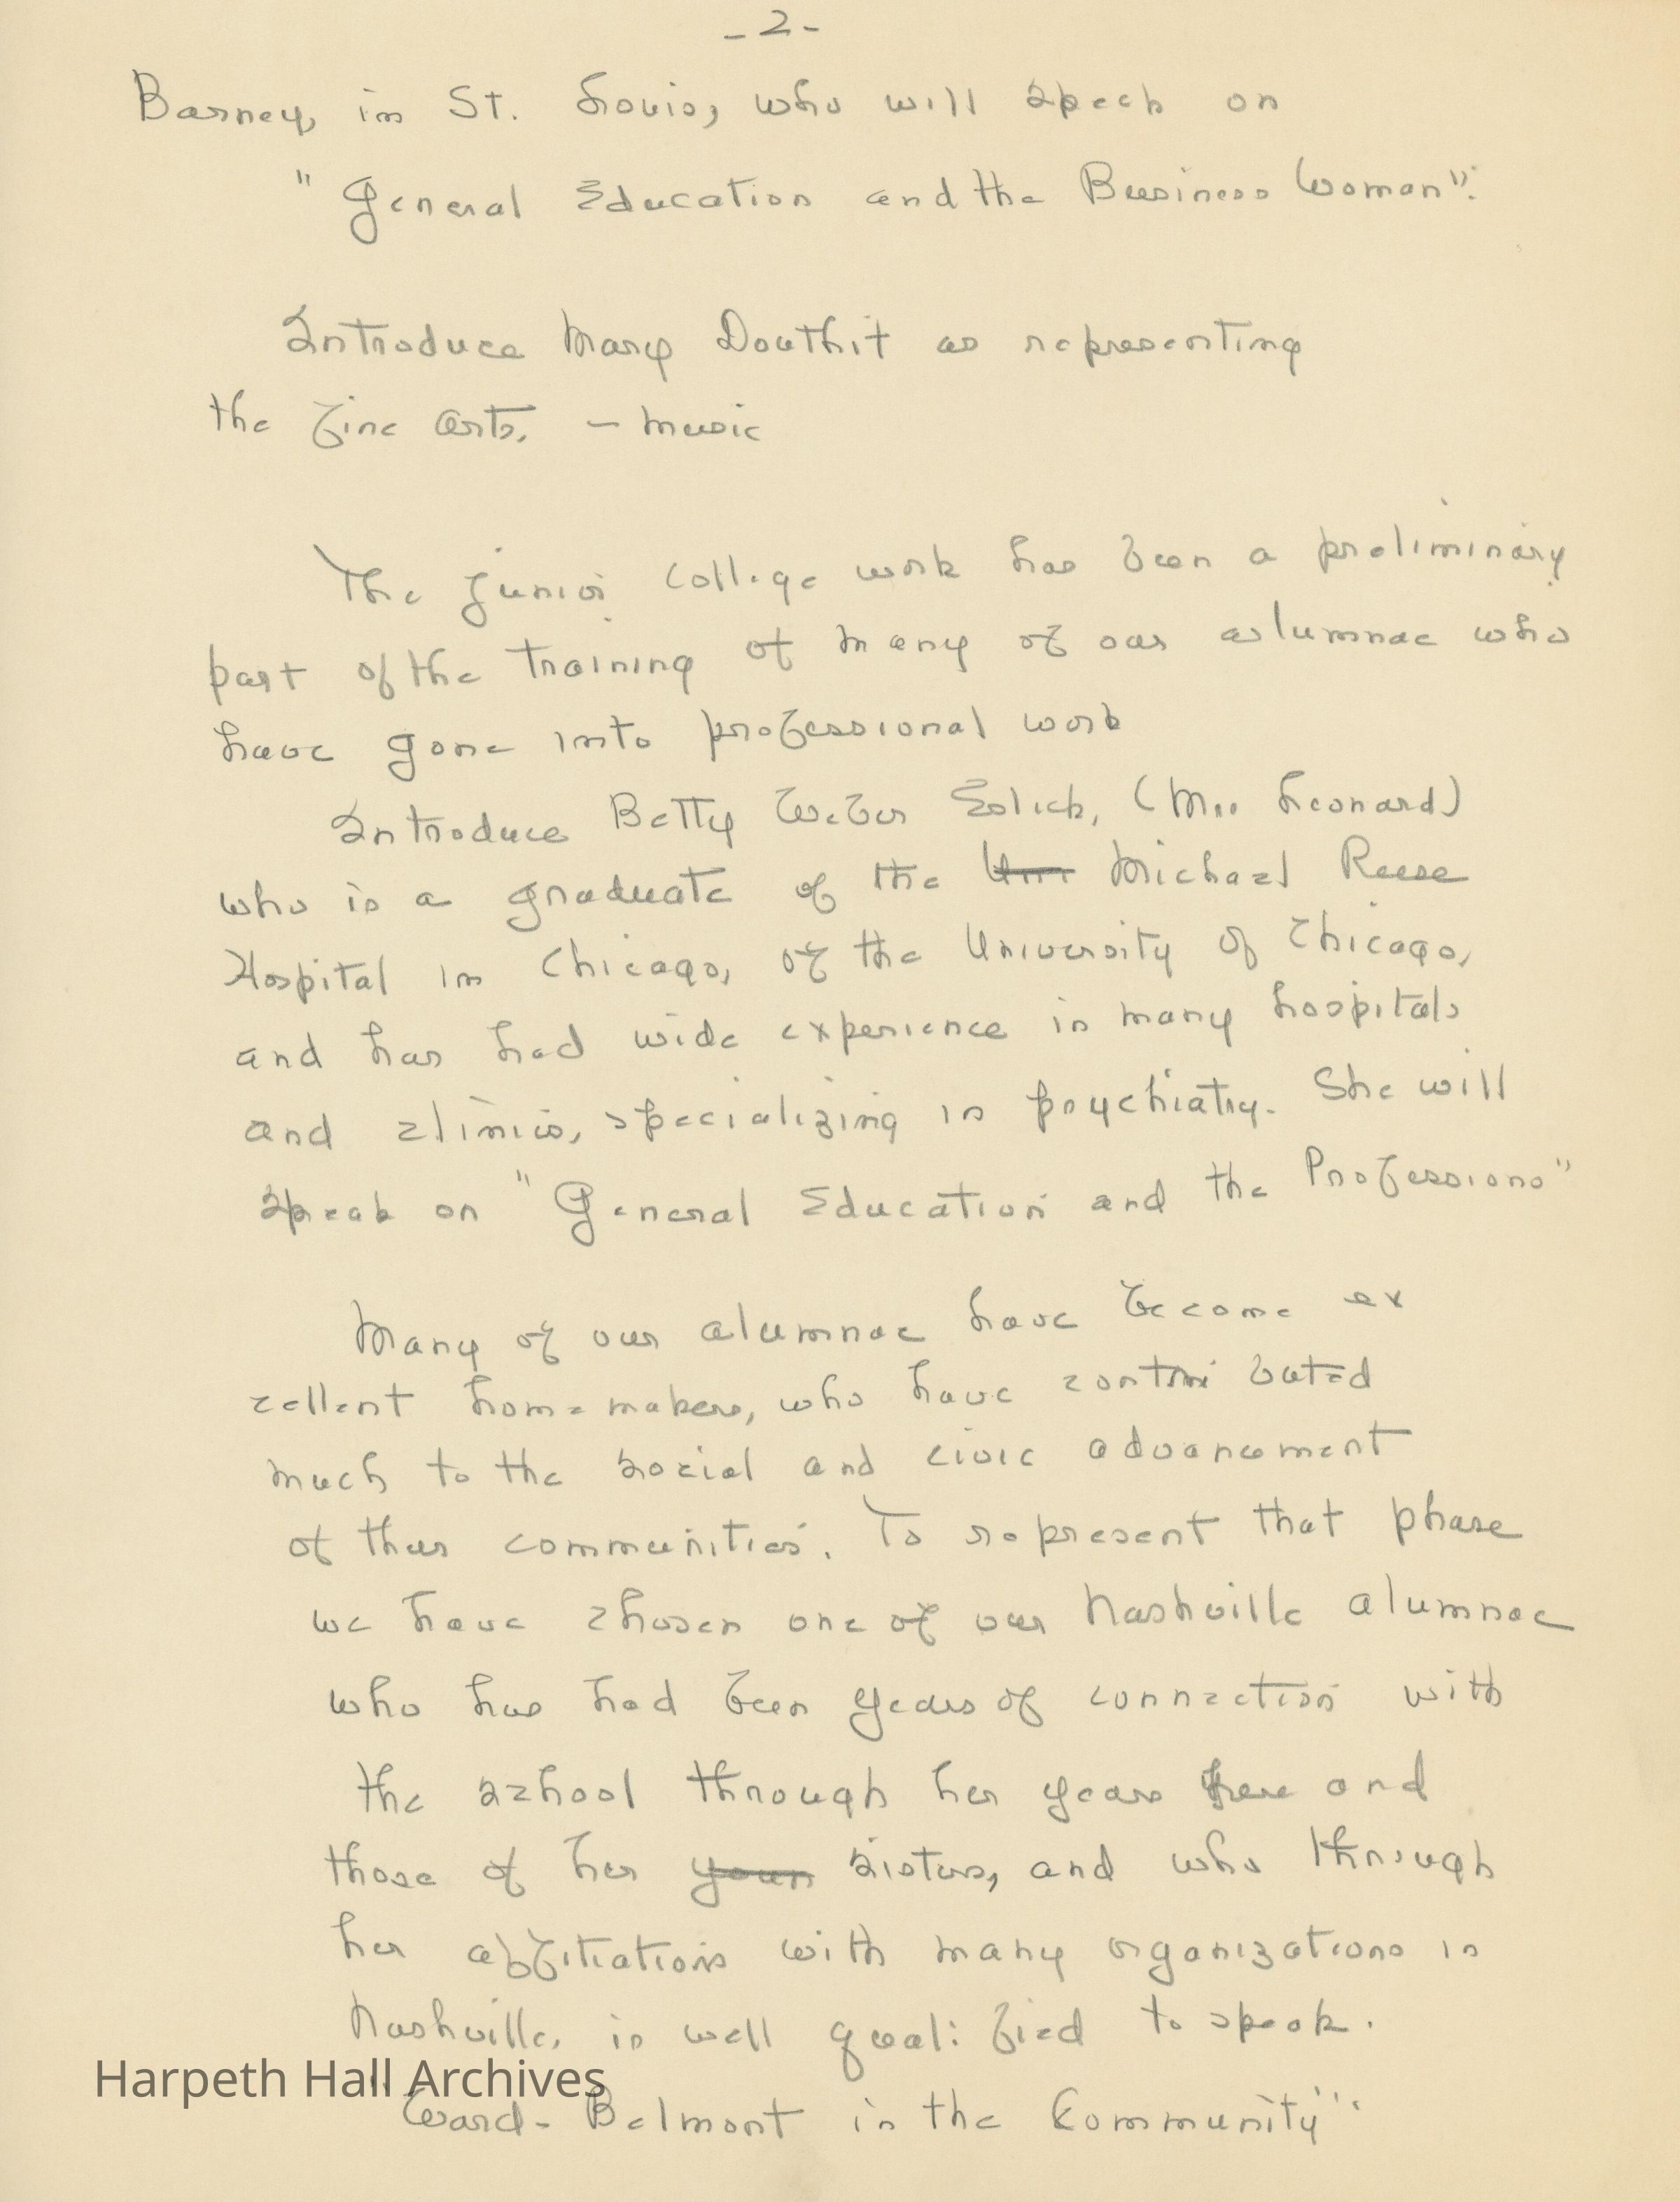 - 2 -
Barney, in St. Louis, who will speak on
"General Education and the Business Woman".
Introduce Mary Douthit as representing
the Fine Arts. - Music
The Junior College work has been a preliminary
part of the training of many of our alumnae who
have gone into professional work
Introduce Betty Weber (Mrs. Leonard)
who is a graduate of the Uni Michael Reese
Hospital in Chicago, of the University of Chicago,
and has had wide experience in many hospitals
and clinics, specializing in psychiatry. She will
speak on "General Education and the Professions"
Many of our alumnae have become ex
cellent homemakers, who have contributed
much to the social and civic advancement
of their communities. To represent that phase
we have chosen one of our Nashville alumnae
who has had been years of connection with
the school through her years here and
those of her sisters, and who through
her affiliations with many organizations in
Nashville, is well qualified to speak.
Harpeth Hall Archives
"Ward-Belmont in the Community".